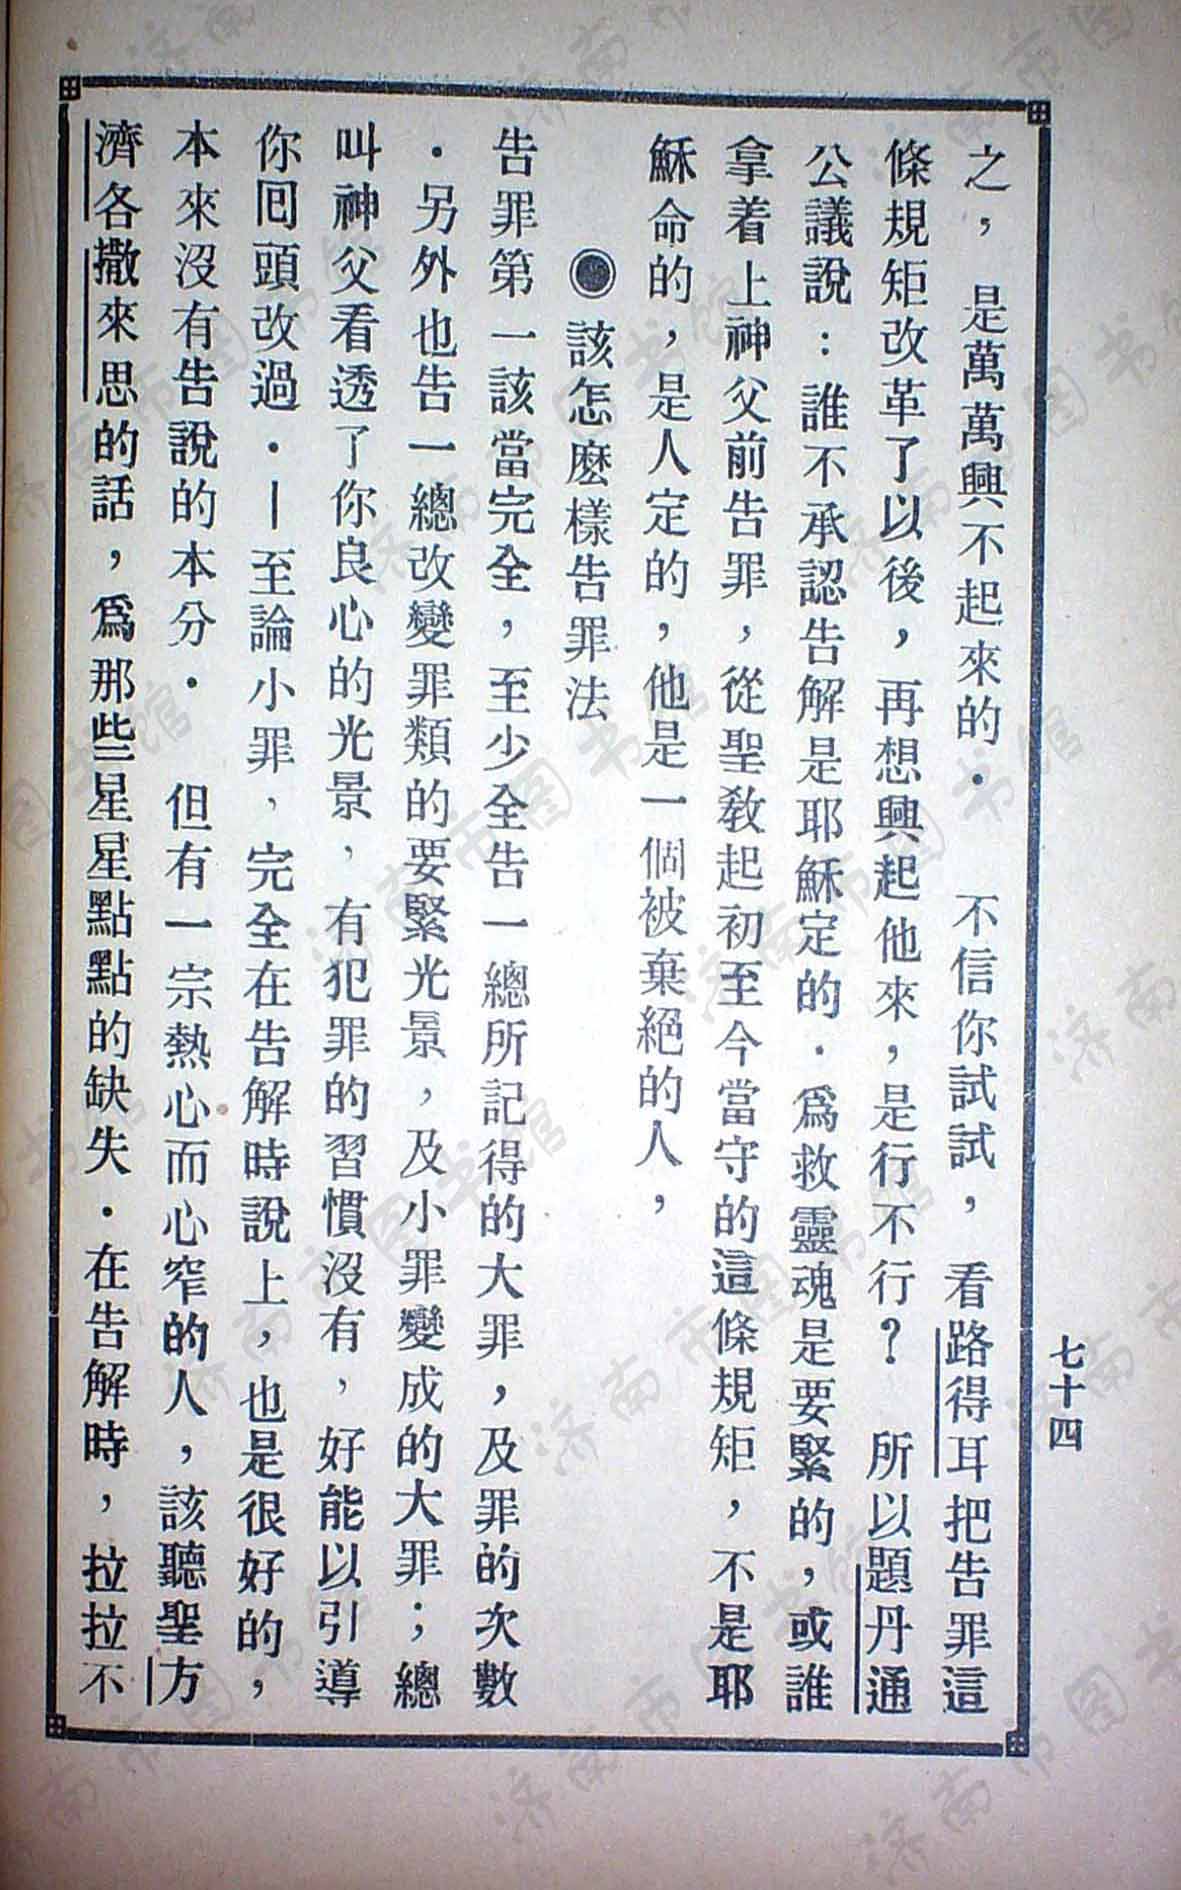 之，是萬萬興不起來的．　不信你試試，看路得耳把告罪這
條規矩改革了以後，再想興起他來，是行不行？　所以題丹通
公議說：誰不承認告解是耶穌定的．爲救靈魂是要緊的，或誰
拿着上神父前告罪，從聖教起初至今當守的這條規矩，不是耶
穌命的，是人定的，他是一個被棄絕的人，
◉該怎麽樣告罪法
告罪第一該當完全，至少全告一總所記得的大罪，及罪的次數
．另外也告一總改變罪類的要緊光景，及小罪變成的大罪；總
叫神父看透了你良心的光景，有犯罪的習慣沒有，好能以引導
你囘頭改過．—至論小罪，完全在告解時說上，也是很好的，
本來沒有告說的本分．　但有一宗熱心而心窄的人，該聽聖方
濟各撒來思的話，爲那些星星點點的缺失．在告解時，拉拉不
七十四
济南市图书馆